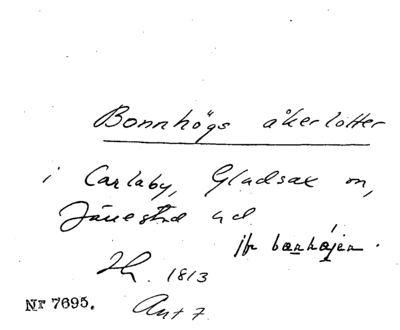 Bonnhögs åkerlotter
i Carlaby, Gladsax sn,
Järrestad hd
jfr bonhöjen.
Jh. 1813
Ant 7
Nr 7695.